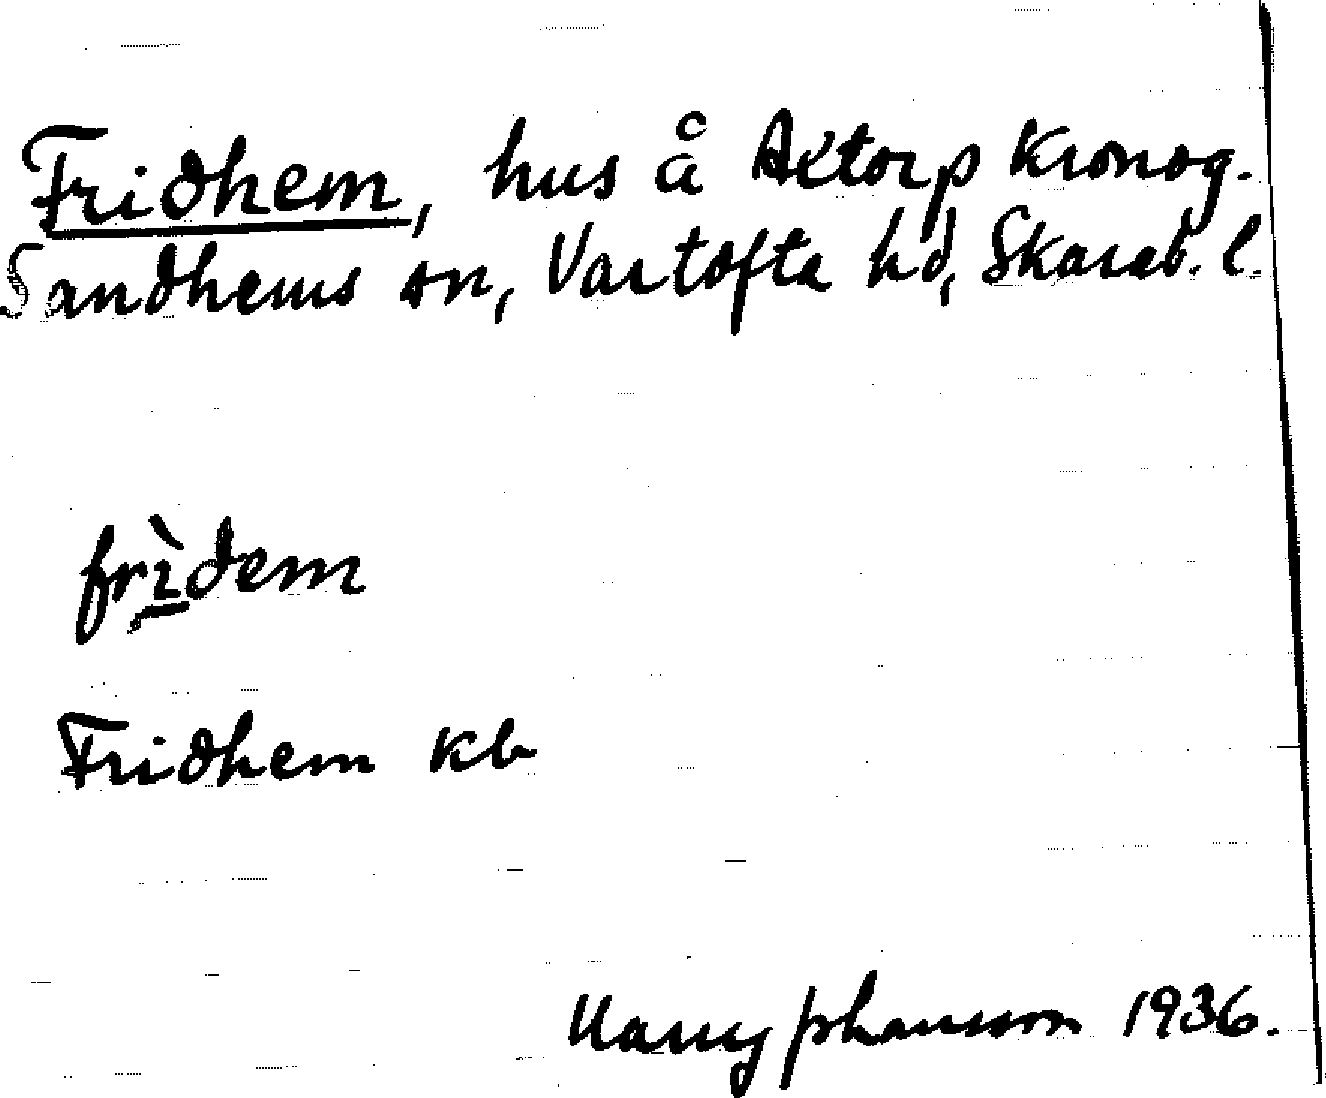 Fridhem, hus å Axtorp Kronog.
Sandhems sn, Vartofta hd, Skarab. l.
frìdem
Fridhem kb
Harry Johansson 1936.